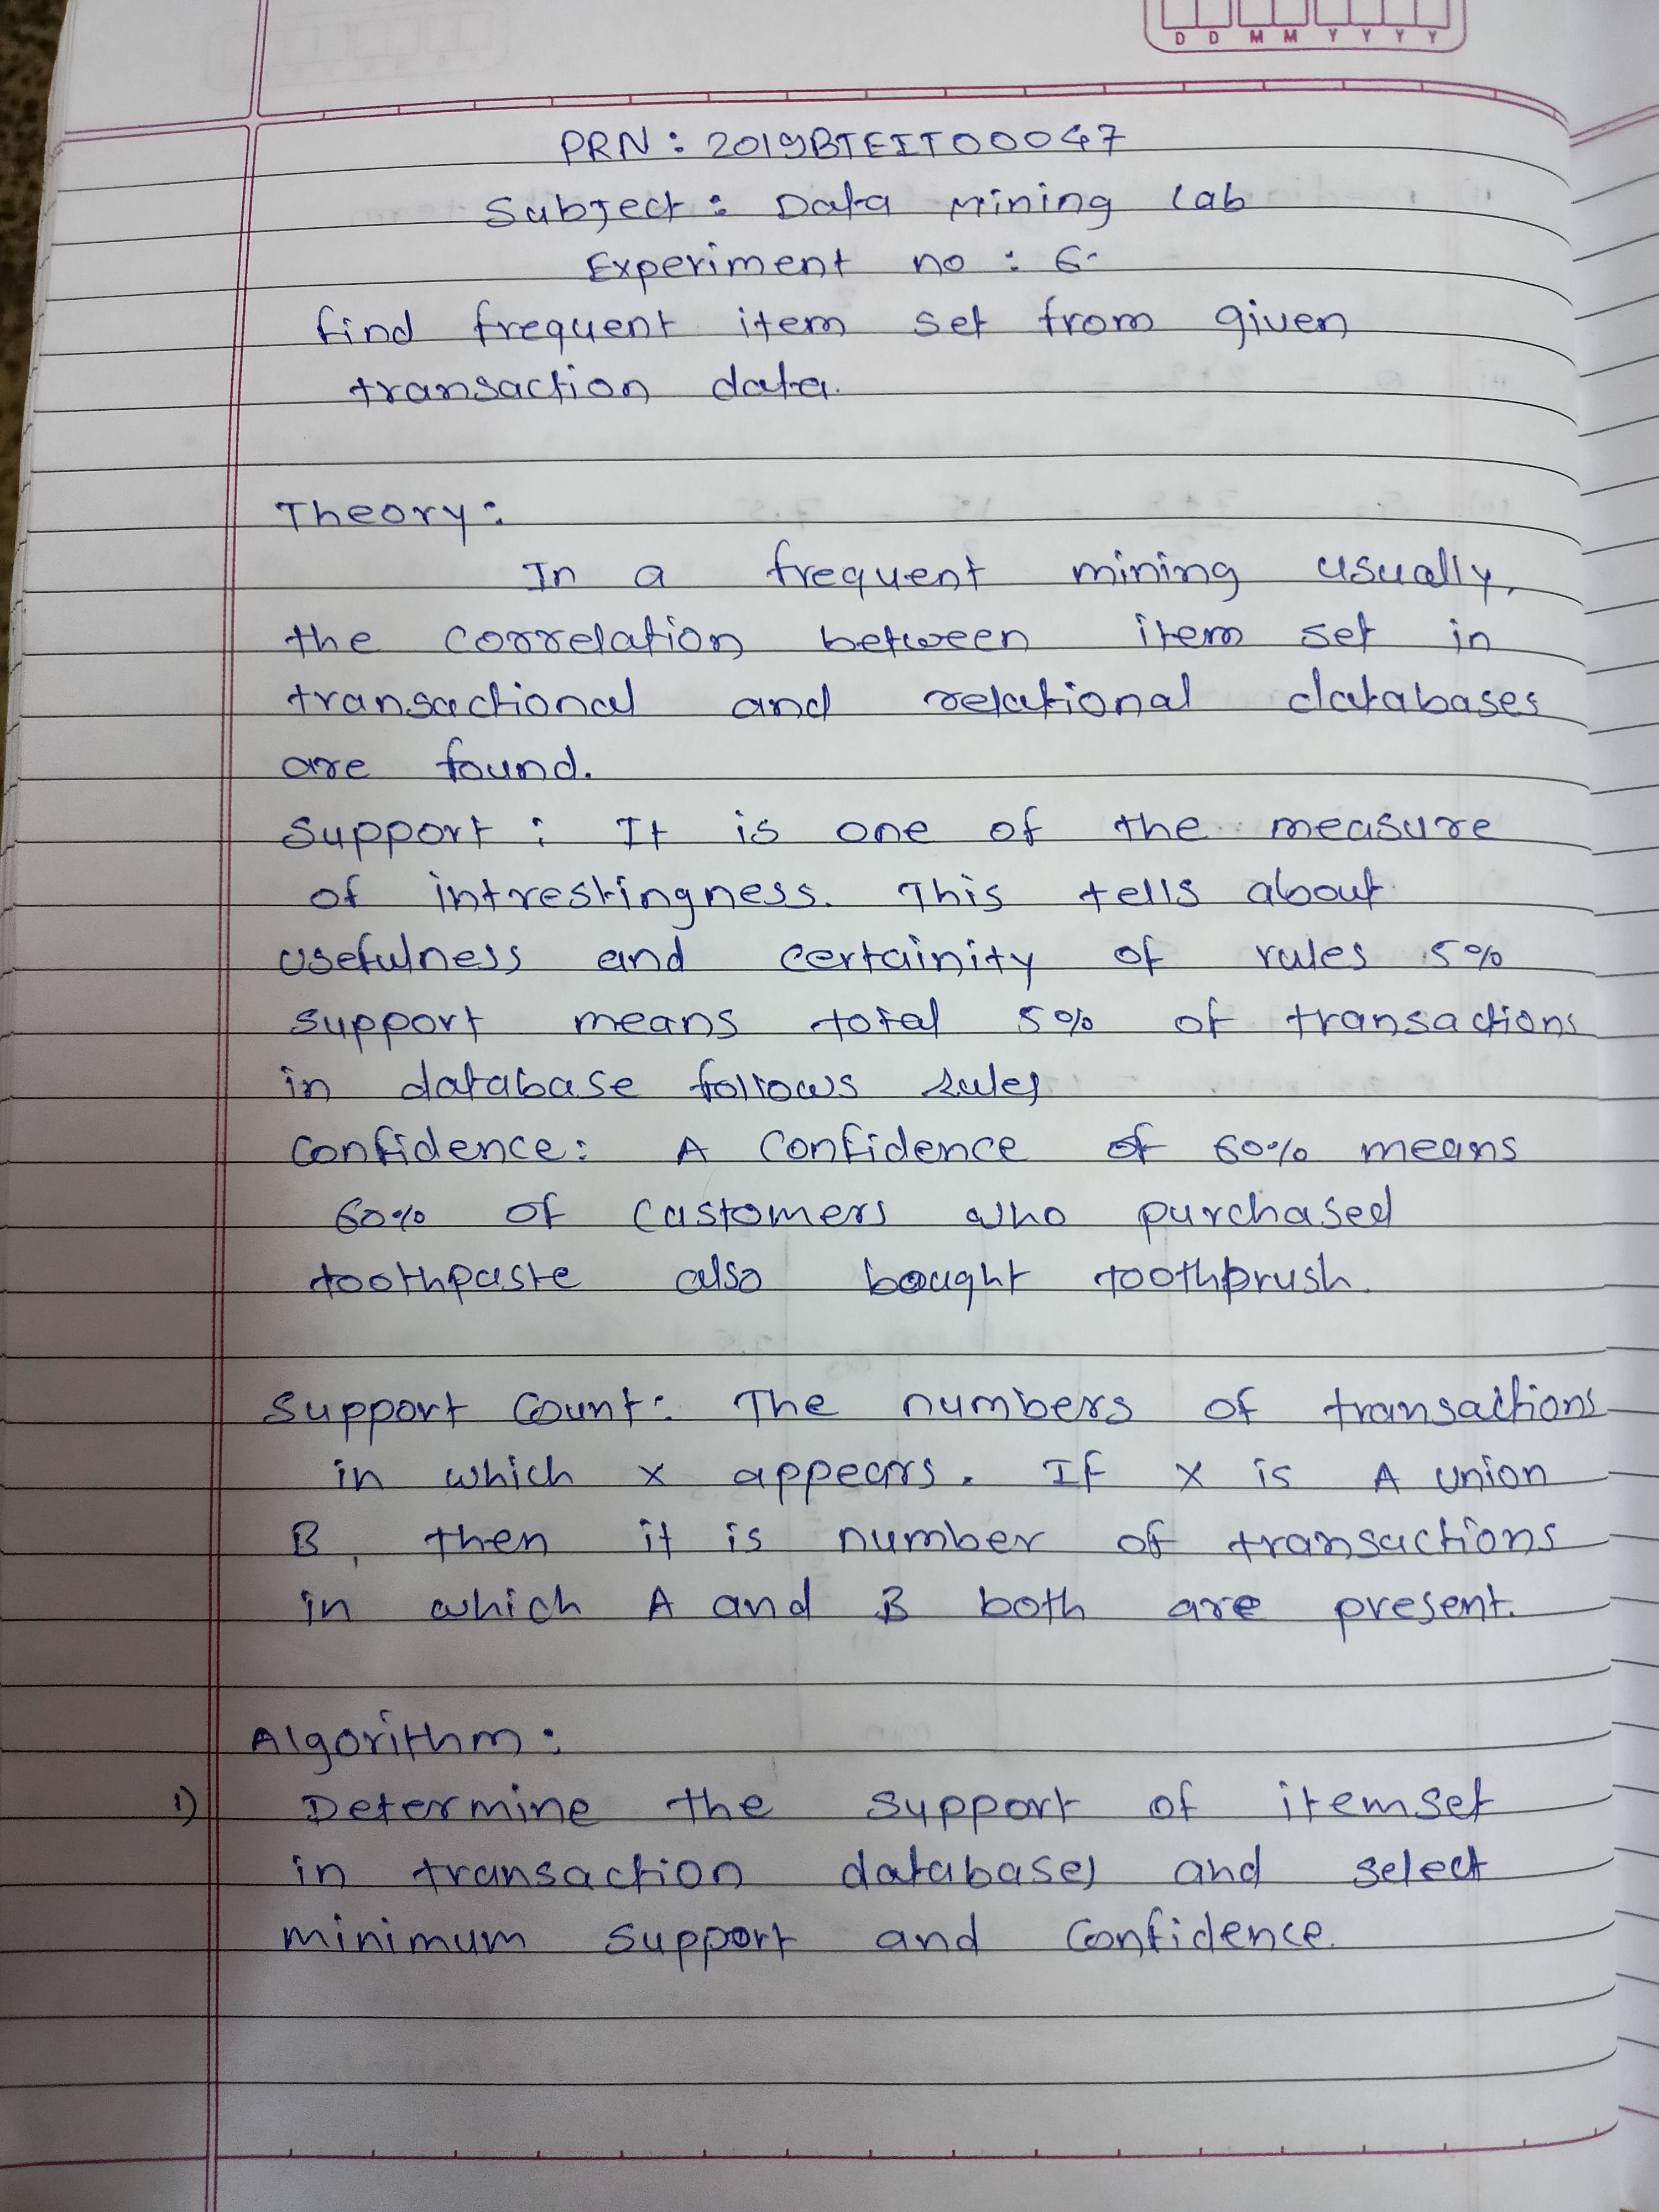 D D M M Y Y Y Y
PRN : 2019BTEIT00047
Subject : Data Mining Lab
Experiment no : 6
find frequent item set from given
transaction data.
Theory :
In a frequent mining usually,
the correlation between item set in
transactional and relational databases
are found.
Support : It is one of the measure
of intrestingness. This tells about
usefulness and certainity of rules 5%
support means total 5% of transactions
in database follows rules
Confidence : A Confidence of 60% means
60% of customers who purchased
toothpaste also bought toothbrush.
Support Count : The numbers of transactions
in which x appears. If x is A union
B, then it is number of transactions
in which A and B both are present.
Algorithm :
1) Determine the support of itemset
in transaction databases and select
minimum support and Confidence.